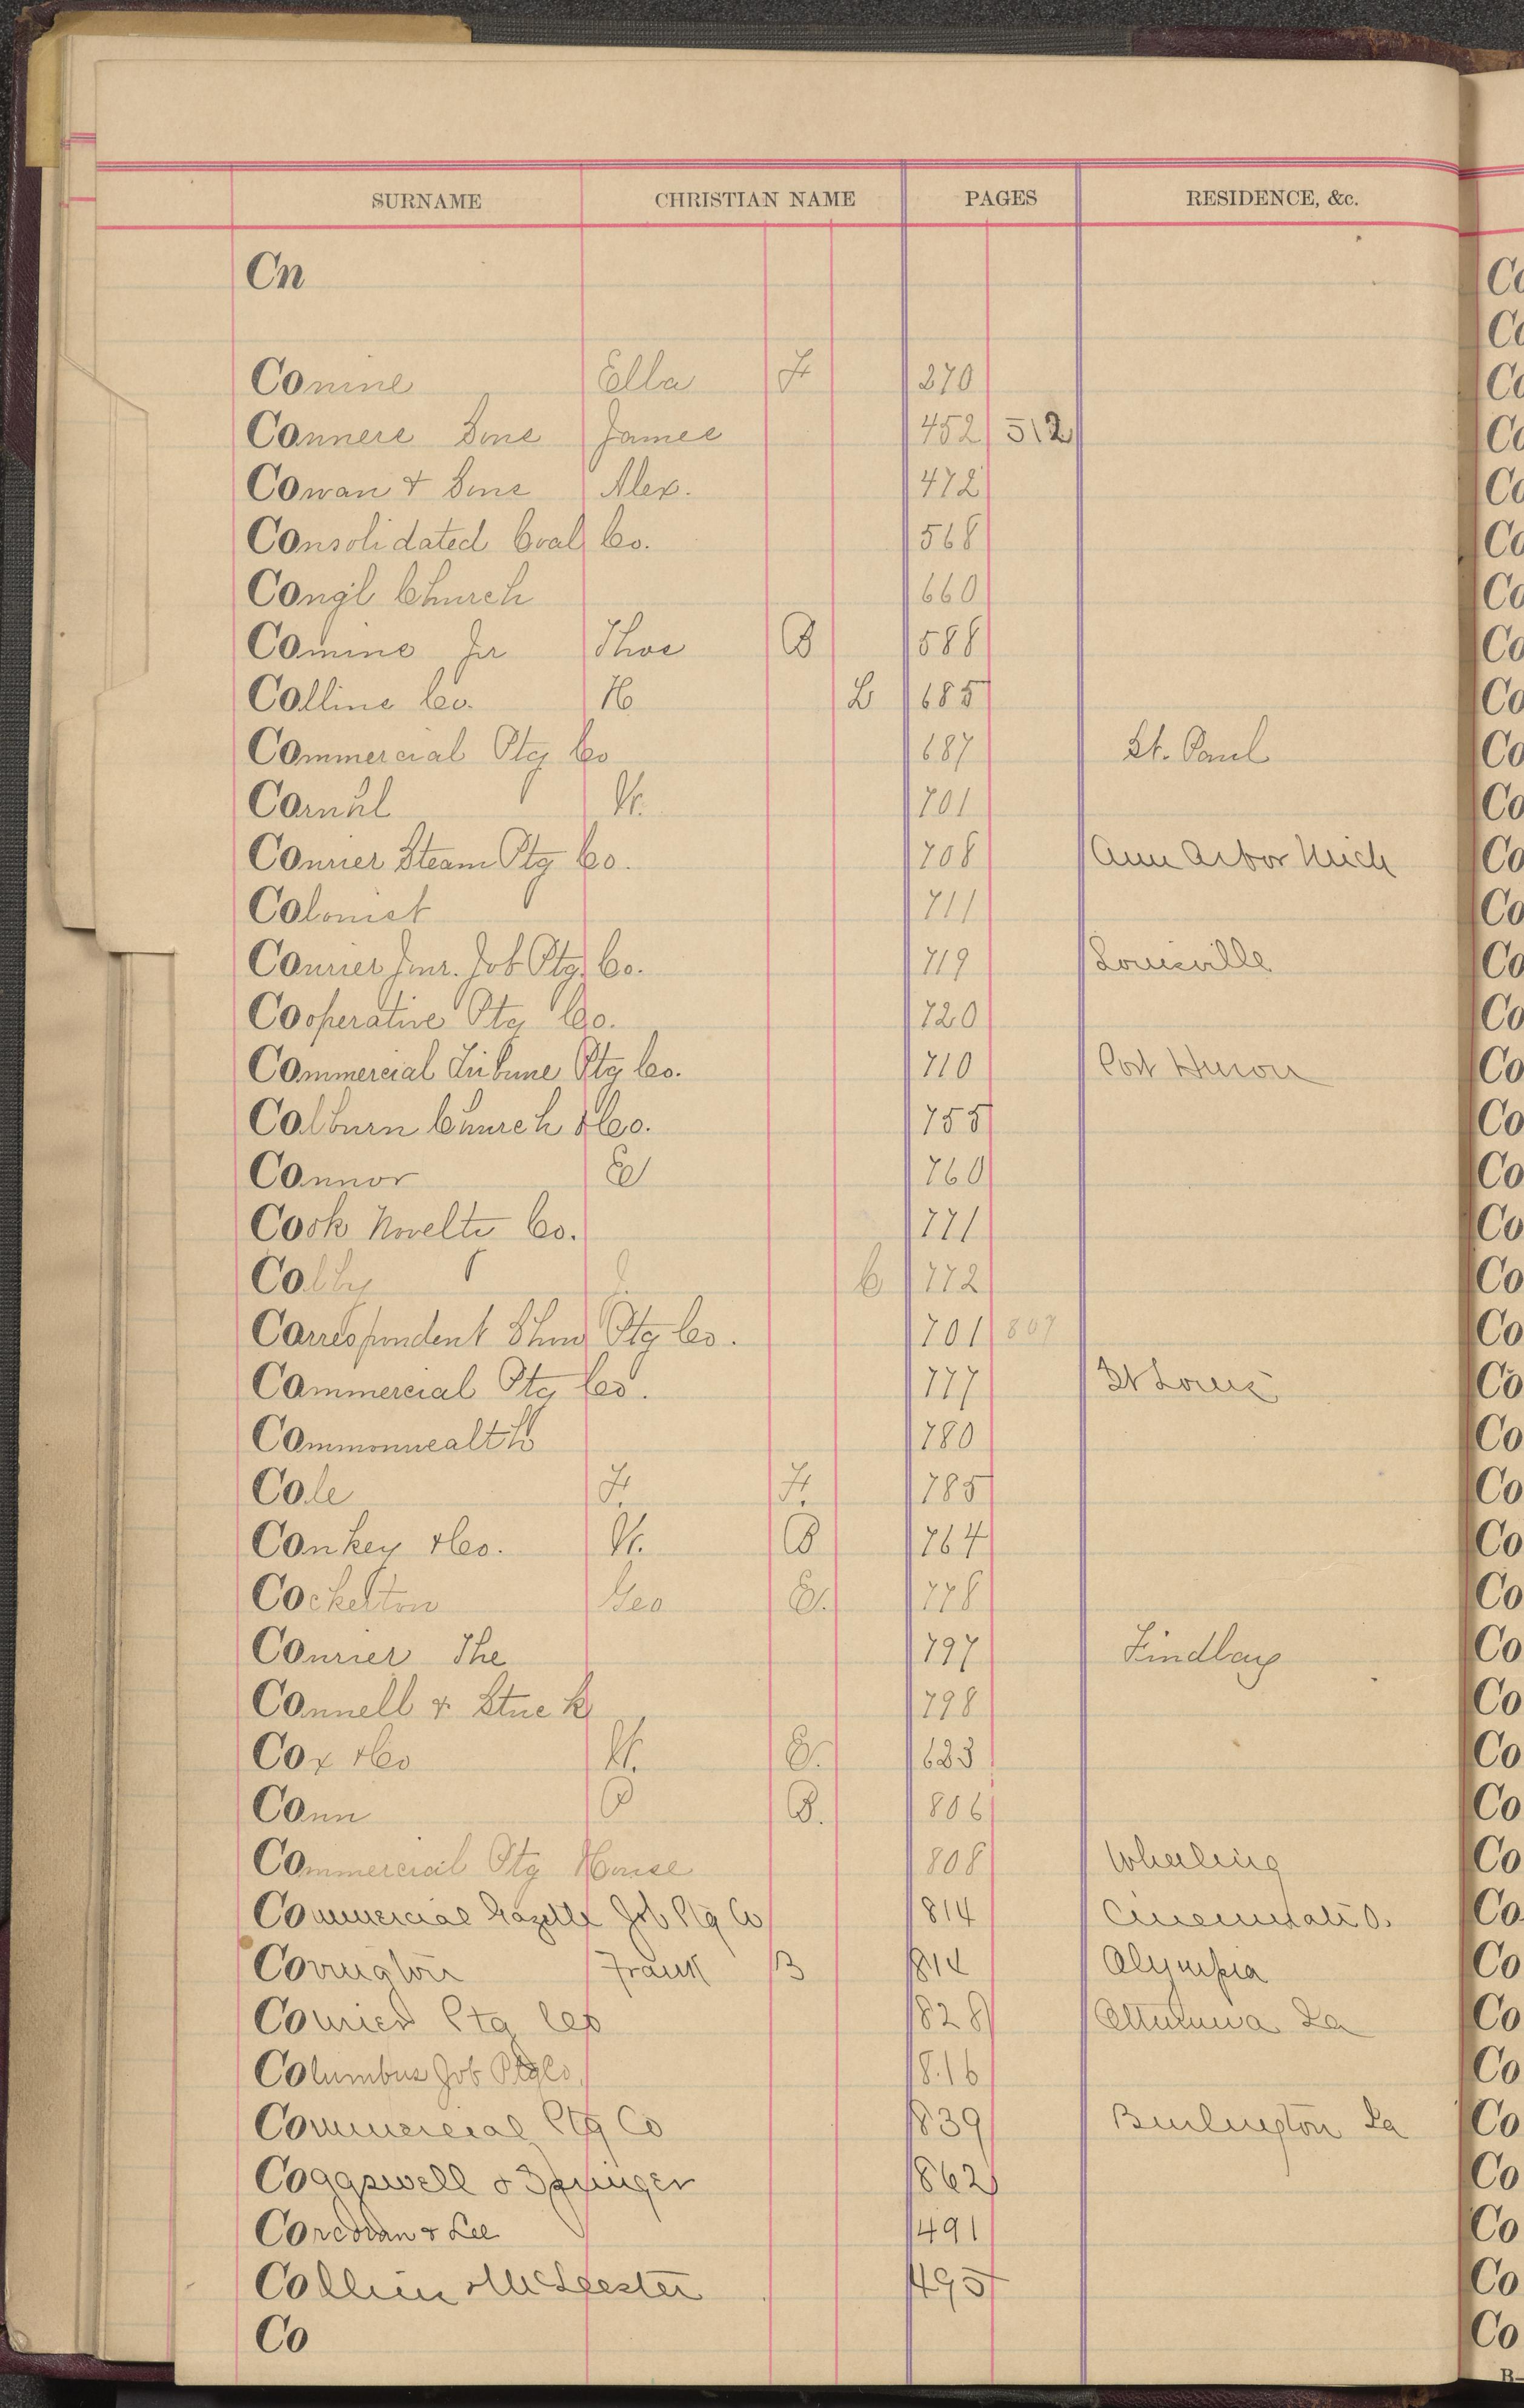 SURNAME CHRISTIAN NAME PAGES RESIDENCE, &c.
Cn
Conine Ella F 270
Conners Sons James 452 512
Cowan & Sons Alex. 472
Consolidated Coal Co. 568
Congl Church 660
Comins Jr Thos B 588
Collins Co. H L 685
Commercial Ptg Co 687 St. Paul
W. 701
Courier Steam Ptg Co. 708 Ann Arbor Mich
Colonist 711
Courier Jour. Job Ptg Co. 719 Louisville
Cooperative Ptg Co. 720
Commercial Tribune Ptg Co. 710 Port Huron
Colburn Church & Co. 755
Connor Ed 760
Cook Novelty Co. 771
Colby C 772
Correspondent Show Ptg Co. 701 807
Commercial Ptg Co. 777 St Louis
Commonwealth 780
Cole F. F. 785
Conkey & Co. W. B 764
Cockerton Geo E. 778
Courier The 797 Findlay
Connell & Stuck 798
Cox & Co W. E. 633
Conn P B. 806
Commercial Ptg House 808 Wheeling
Commercial Gazette Job Ptg Co 814 Cincinnati O.
Covington Frank B 814 Olympia
Courier Ptg Co 828 Ottumwa Ia
Columbus Job Ptg Co. 816
Commercial Ptg Co 839 Burlington Ia
Coggswell & Springer 862
Corcoran & Lee 491
Collins & McLeester 495
Co